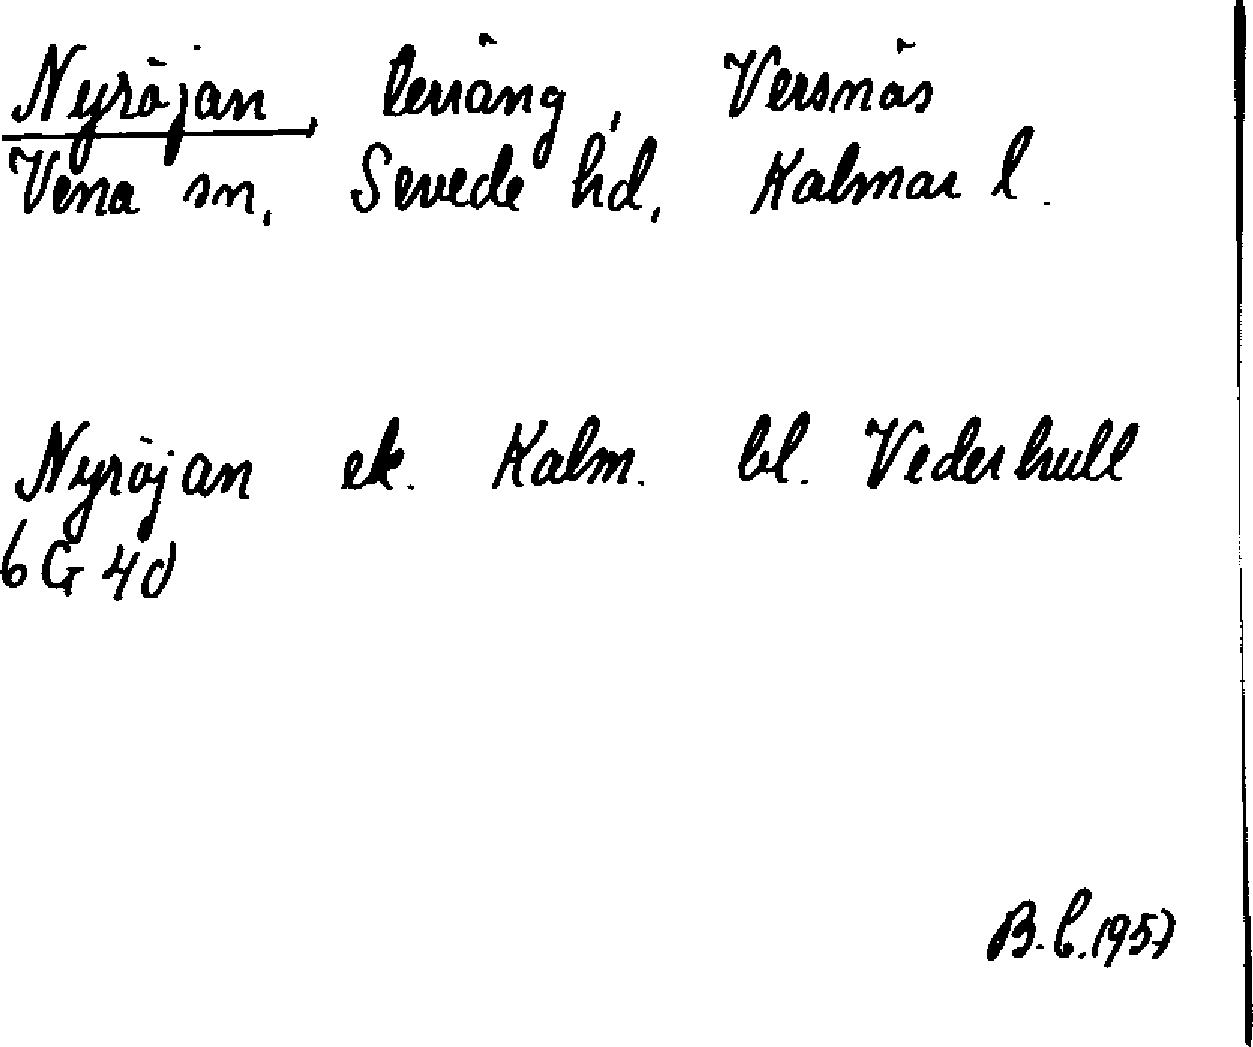 Nyröjan, terräng, Versnäs
Vena sn, Sevede hd, Kalmar l.
Nyröjan ek. Kalm. bl. Vederhult
6G 4d
B. C. 1957